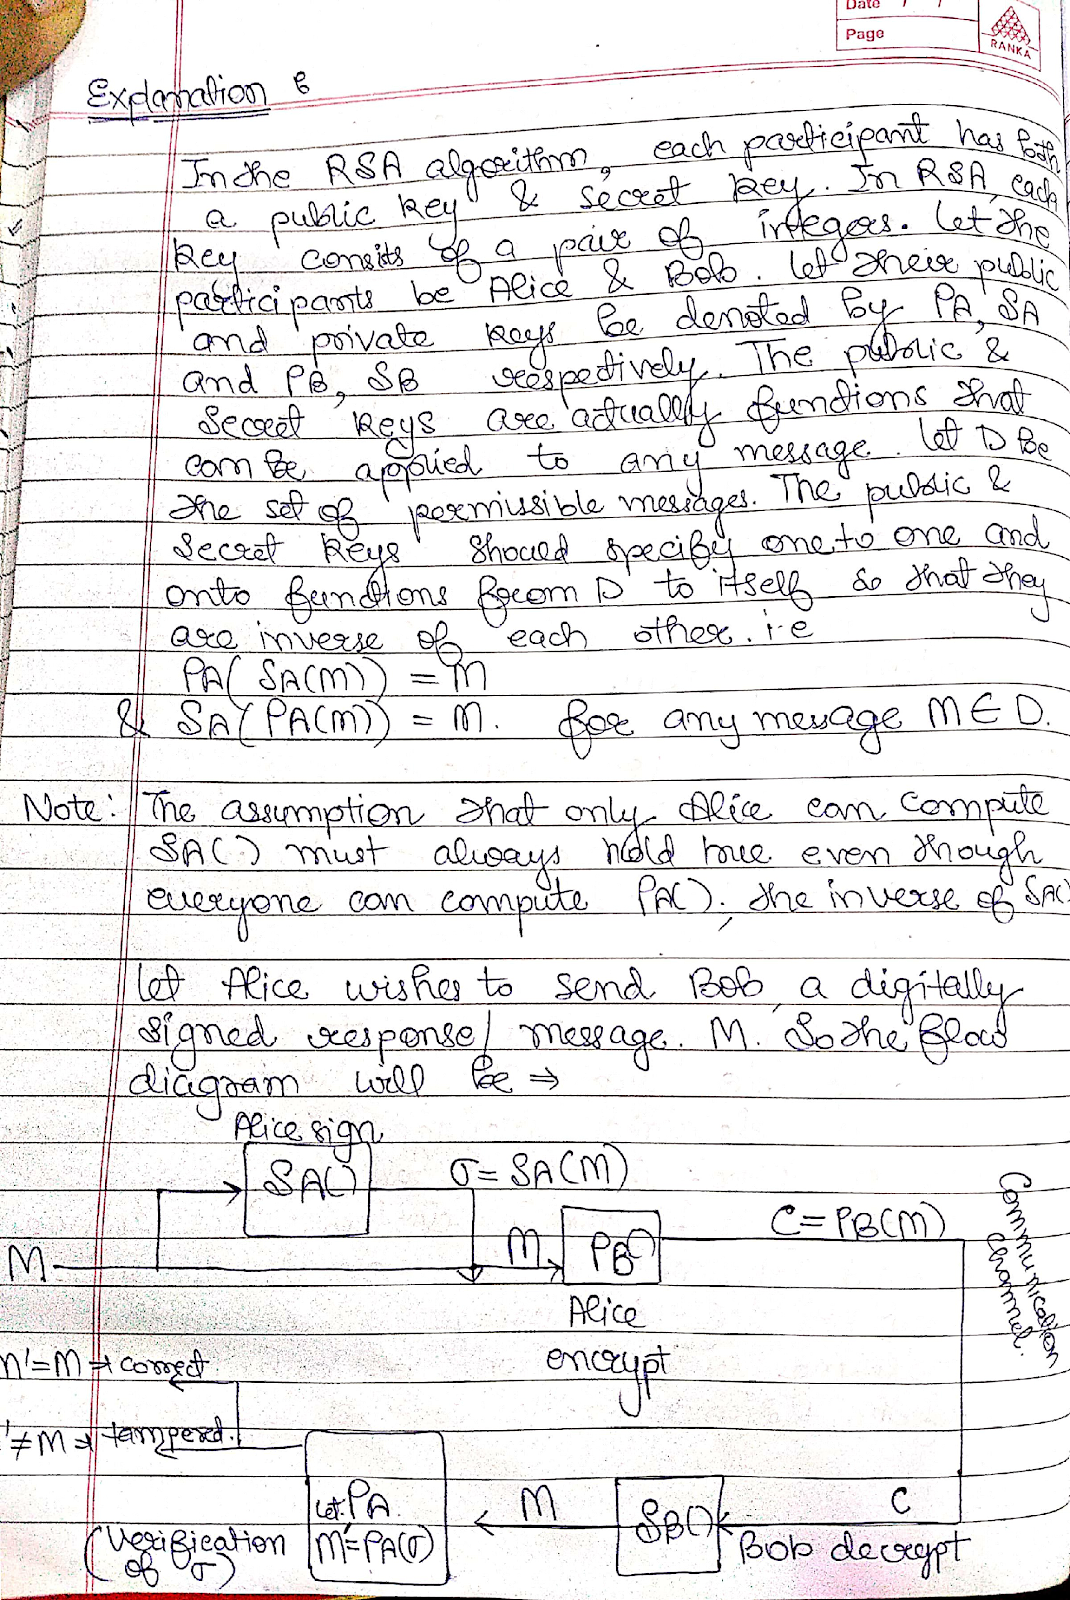 Date / /
Page
RANKA
Explanation :
In the RSA algorithm, each participant has both
a public key & secret key. In RSA, each
key consits of a pair of integers. Let the
participants be Alice & Bob. Let their public
and private keys be denoted by PA, SA
and PB, SB respectively. The public &
secret keys are actually functions that
can be applied to any message. Let D be
the set of permissible messages. The public &
secret keys should specify one to one and
onto functions from D to itself so that they
are inverse of each other. i.e
PA( SA(M)) = M
& SA(PA(M)) = M. for any message M ∈ D.
Note: The assumption that only Alice can compute
SA() must always hold true even though
everyone can compute PA(), the inverse of SA()
Let Alice wishes to send Bob, a digitally
signed response/message. M. So the flow
diagram will be ⇒
Alice sign
SA()
σ = SA(M)
M
M
PB()
C = PB(M)
Communication
channel.
Alice
encrypt
m'=M → correct
'≠M → tampered.
Let PA
M'=PA(σ)
(Verification
of σ)
M
SB()
C
Bob decrypt